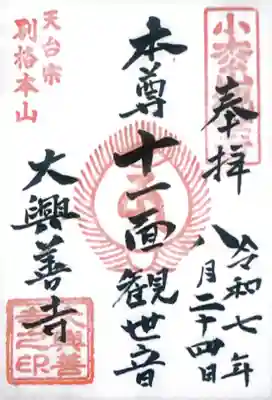 奉拝
令和七年
八月二十四日
本尊十一面観世音
大興善寺
天台宗
別格本山
大興善
寺之印